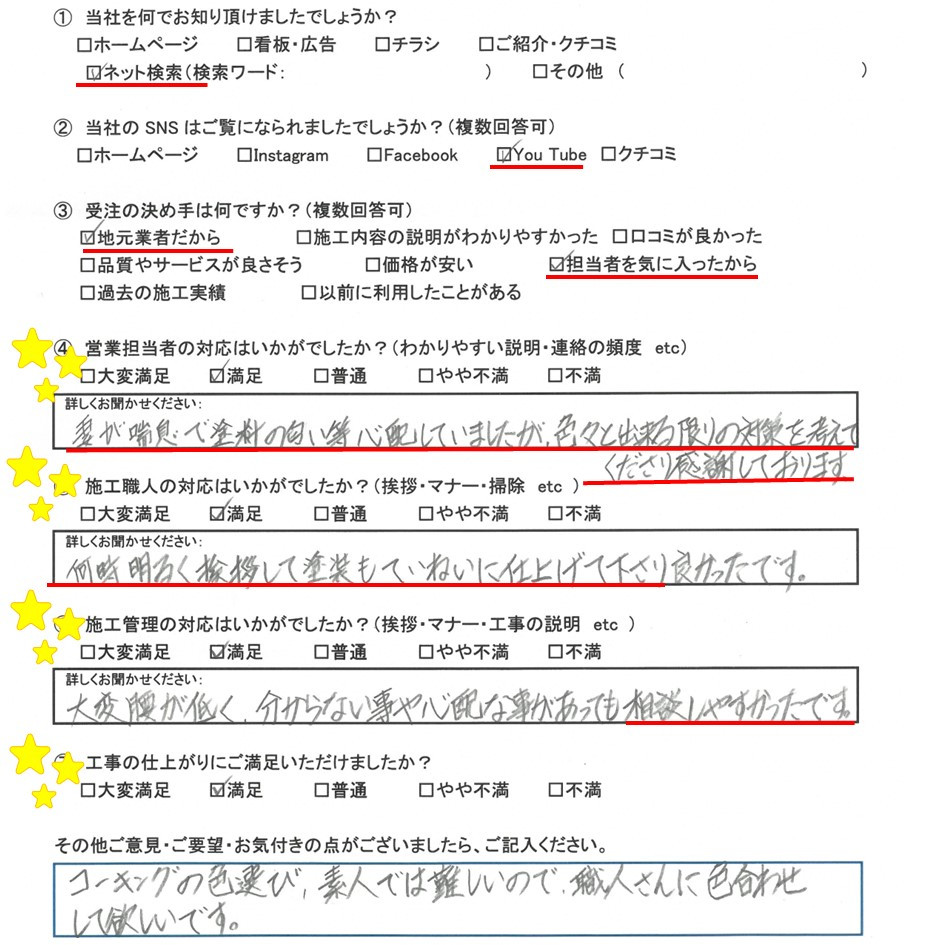 ① 当社を何でお知り頂けましたでしょうか？
□ホームページ □看板・広告 □チラシ □ご紹介・クチコミ
☑ネット検索（検索ワード： ） □その他 （ ）
② 当社の SNS はご覧になられましたでしょうか？（複数回答可）
□ホームページ □Instagram □Facebook ☑You Tube □クチコミ
③ 受注の決め手は何ですか？（複数回答可）
☑地元業者だから □施工内容の説明がわかりやすかった □口コミが良かった
□品質やサービスが良さそう □価格が安い ☑担当者を気に入ったから
□過去の施工実績 □以前に利用したことがある
④ 営業担当者の対応はいかがでしたか？（わかりやすい説明・連絡の頻度 etc）
□大変満足 ☑満足 □普通 □やや不満 □不満
詳しくお聞かせください：
妻が喘息で塗料の匂い等心配していましたが、色々と出来る限りの対策を考えて
くださり感謝しております
施工職人の対応はいかがでしたか？（挨拶・マナー・掃除 etc ）
□大変満足 ☑満足 □普通 □やや不満 □不満
詳しくお聞かせください：
何時明るく挨拶して塗装もていねいに仕上げて下さり良かったです。
施工管理の対応はいかがでしたか？（挨拶・マナー・工事の説明 etc ）
□大変満足 ☑満足 □普通 □やや不満 □不満
詳しくお聞かせください：
大変腰が低く、分からない事や心配な事があっても相談しやすかったです。
工事の仕上がりにご満足いただけましたか？
□大変満足 ☑満足 □普通 □やや不満 □不満
その他ご意見・ご要望・お気付きの点がございましたら、ご記入ください。
コーキングの色選び、素人では難しいので、職人さんに色合わせ
して欲しいです。